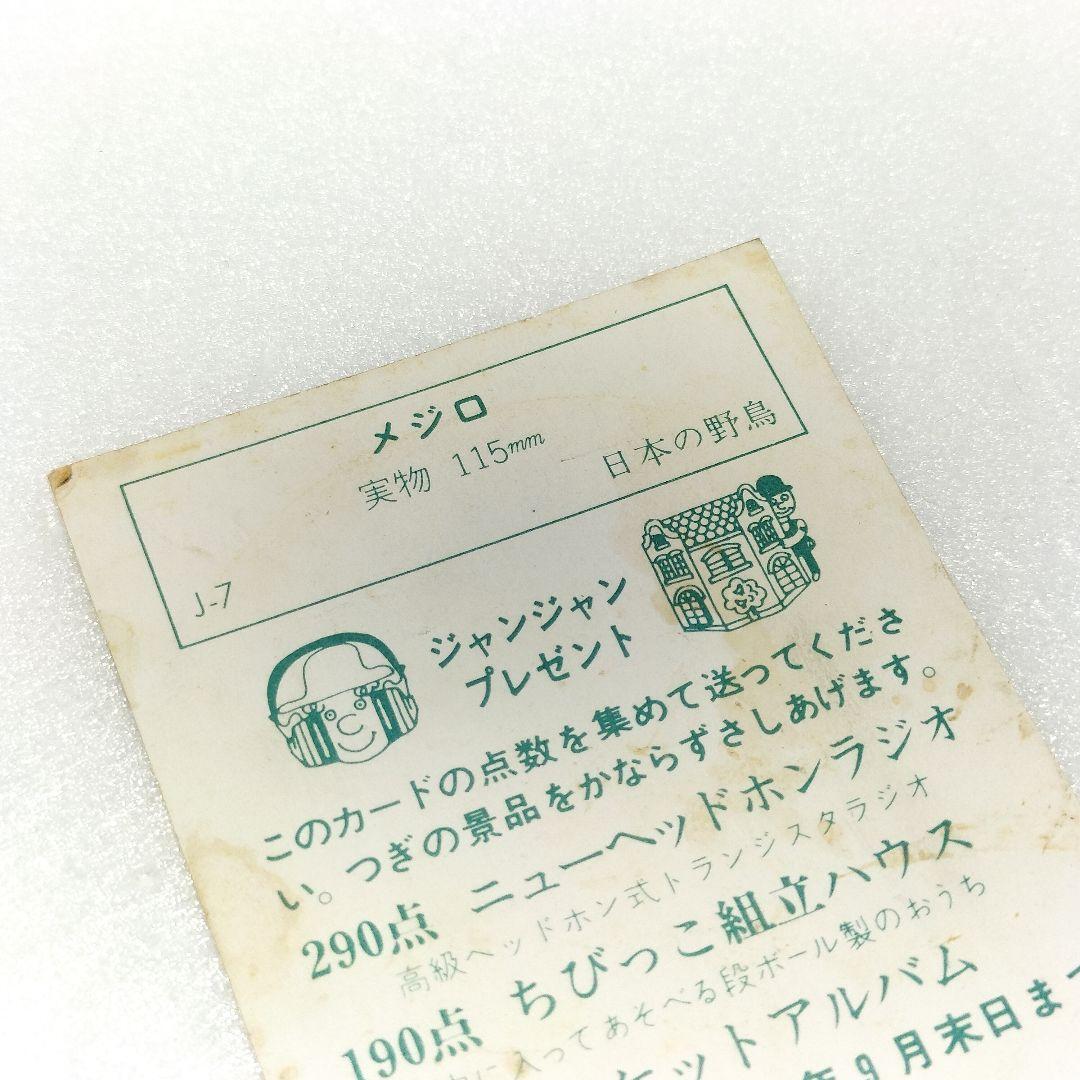 メジロ
実物 115mm
日本の野鳥
J-7
ジャンジャン
プレゼント
このカードの点数を集めて送ってくださ
い。つぎの景品をかならずさしあげます。
290点 ニューヘッドホンラジオ
高級ヘッドホン式トランジスタラジオ
190点 ちびっこ組立ハウス
に入ってあそべる段ボール製のおうち
ケットアルバム
年9月末日ま